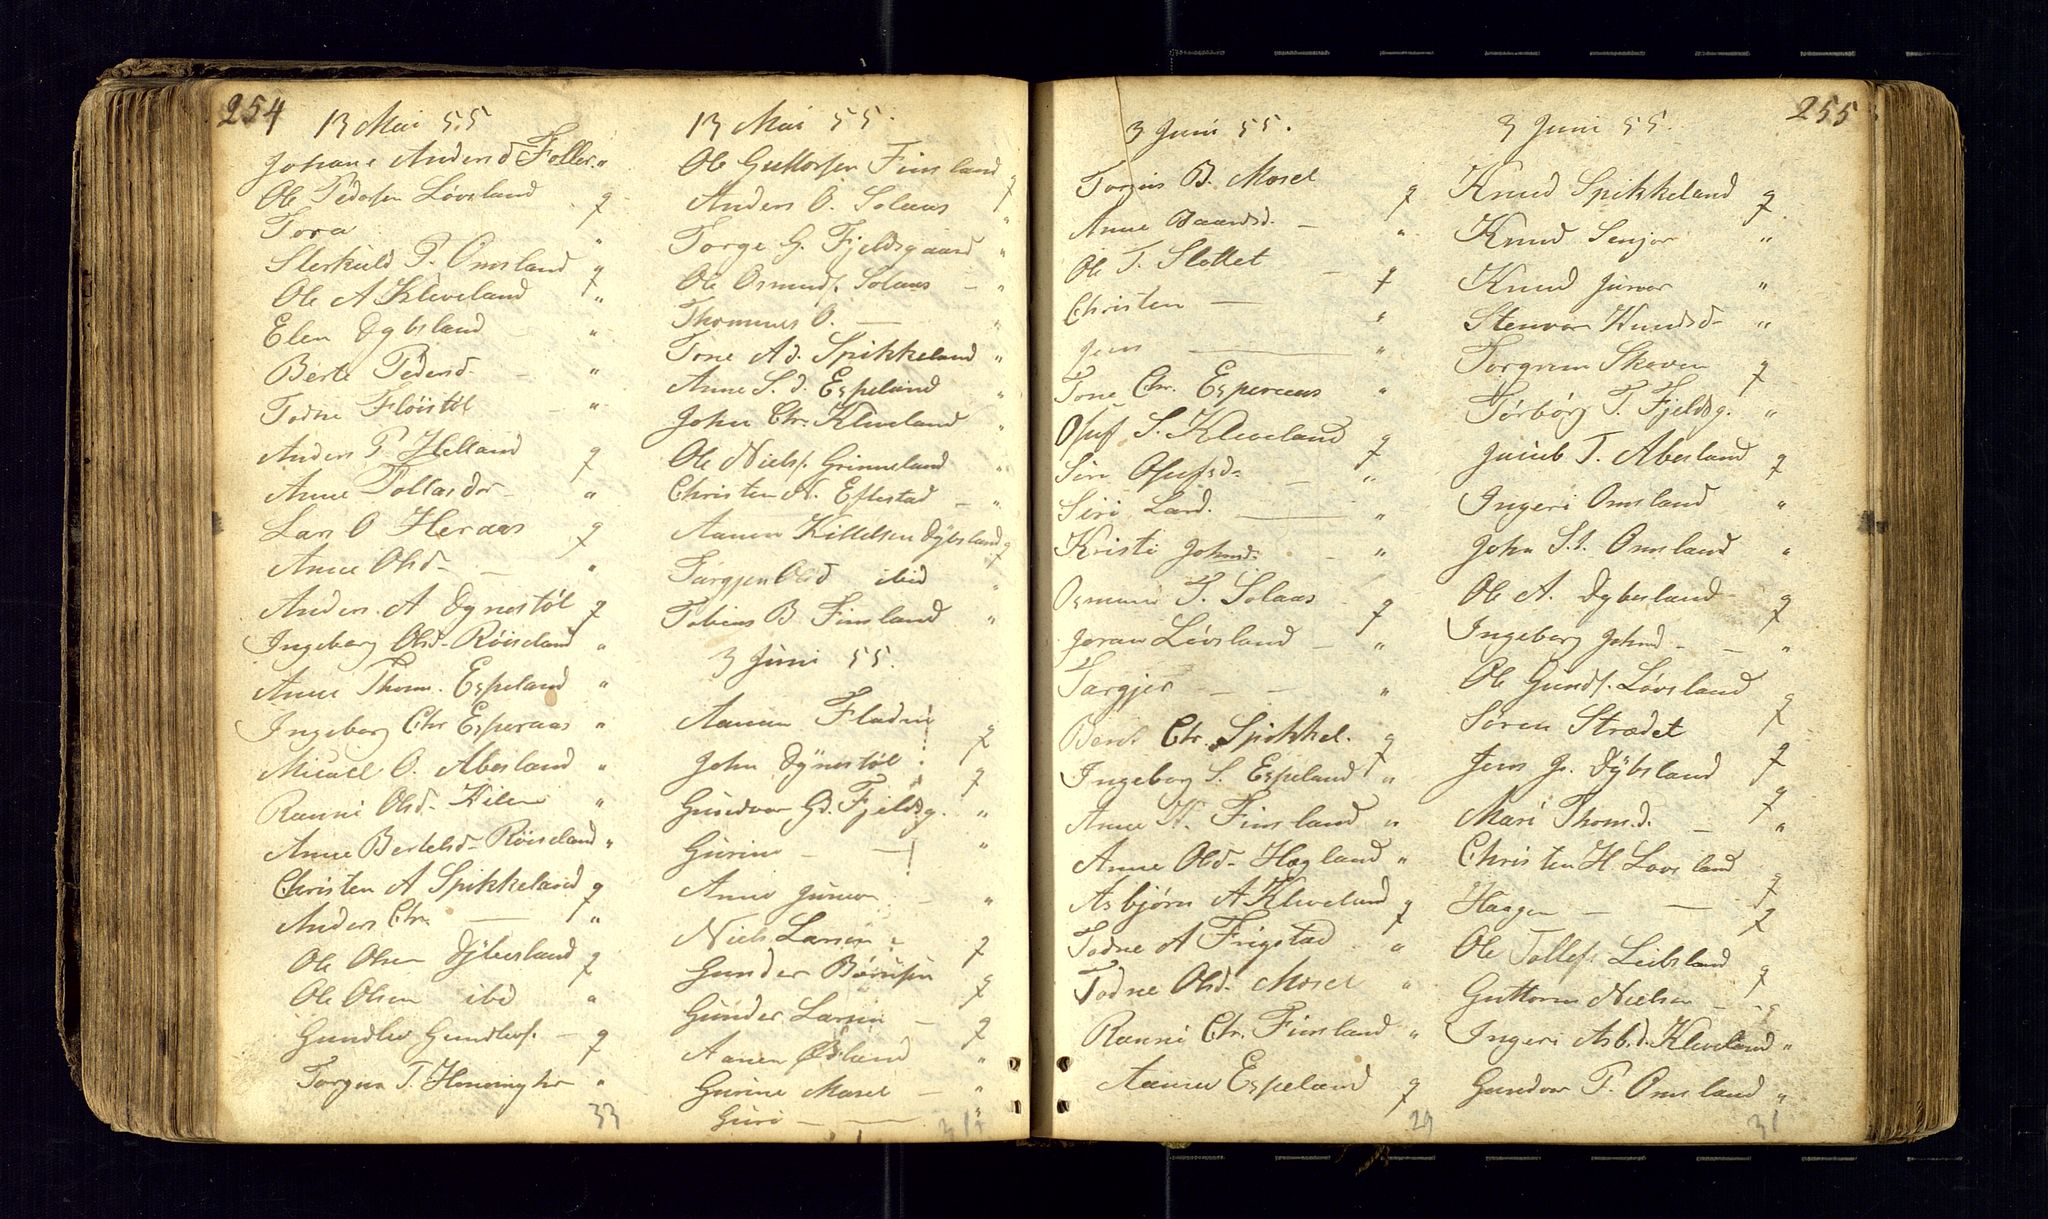 254
13 Mai 55
Johane Andersd Foller. "
Ole Pedersen Løvsland g
Tora "
Sterkuld P. Omsland g
Ole A Kleveland "
Elen Dybsland "
Berte Pedersd. - "
Todne Fløistøl - "
Anders P Helland g
Anne Tollasdr - "
Lars O Heraas g
Anne Olsd - - "
Anders A Dynestøl g
Ingeborg Olsd - Røiseland "
Anne Thom. Espeland "
Ingeborg Chr Esperaas "
Micael O. Abesland "
Ranni Olsd - "
Anne Bertelsd - Røiseland "
Christen A Spikkeland g
Anders Chr. - "
Ole Olsen Dybesland g
Ole Olsen ibd "
Gundlev Gundlefs. - g
Torgun T. "
33
13 Mai 55.
Ole Guttorsen Finsland g
Anders O. Solaas "
Torge G. Fjeldsgaard "
Ole Osmunds. Solaas - "
Thommes O. - "
Tone Ad. Spikkeland "
Anne S. d. Espeland "
John Chr. Kleveland "
Ole Niels. Grimmeland "
Christen N. Eftestad - "
Aanen Kittelsen Dybsland g
Targjer Olsd ibid "
Tobias B. Finsland "
3 Juni 55.
Aanen g
John Dynestøl. g
Gundvor Gd. Fjeldsg. "
Gurine - - "
Anne Junior - "
Niels Larsen - g
Gunder g
Gunder Larsen - g
Aanen Øvland "
Gurine Mosel - "
Guri - - "
255
3 Juni 55.
Torjus B. Mosel g
Anne Baardsd. - "
Ole T. Slottet - g
Christen - "
Jens - "
Tone Chr. Esperaas "
Osuf S. Kleveland g
Siri Osufsd - - "
Siri Larsd. - "
Kristi Johnsd. - "
Osmund T. Solaas g
Joran Løvsland - "
Targjer - - "
Berte Chr. Spikkel. g
Ingeborg S. Espeland "
Anne N. Finsland "
Anne Olsd - Hægland "
Asbjørn A Kleveland g
Todne A Frigstad "
Todne Olsd - Mosel "
Ranni Chr. Finsland "
Aanen Espeland g
29
3 Juni 55.
Knud Spikkeland g
Knud Senjor "
Knud Junior "
Stenvor Knudsd - "
Torgrim Skoven g
Torborg T. Fjeldsg. "
Jacob T. Abesland g
Ingeri Omsland "
John S. Omsland "
Ole A. Dybesland g
Ingeborg Johnsd - - "
Ole Gunds. Løvsland g
Søren Strædet g
Jens Js. Dybsland g
Mari Thom.d. - "
Christen H Lovsland g
Haagen - - g
Ole Tollefs. Leibsland g
Guttorm Nielsen - g
Ingeri Asb.d. Kleveland "
Gundvor P. Omsland "
31